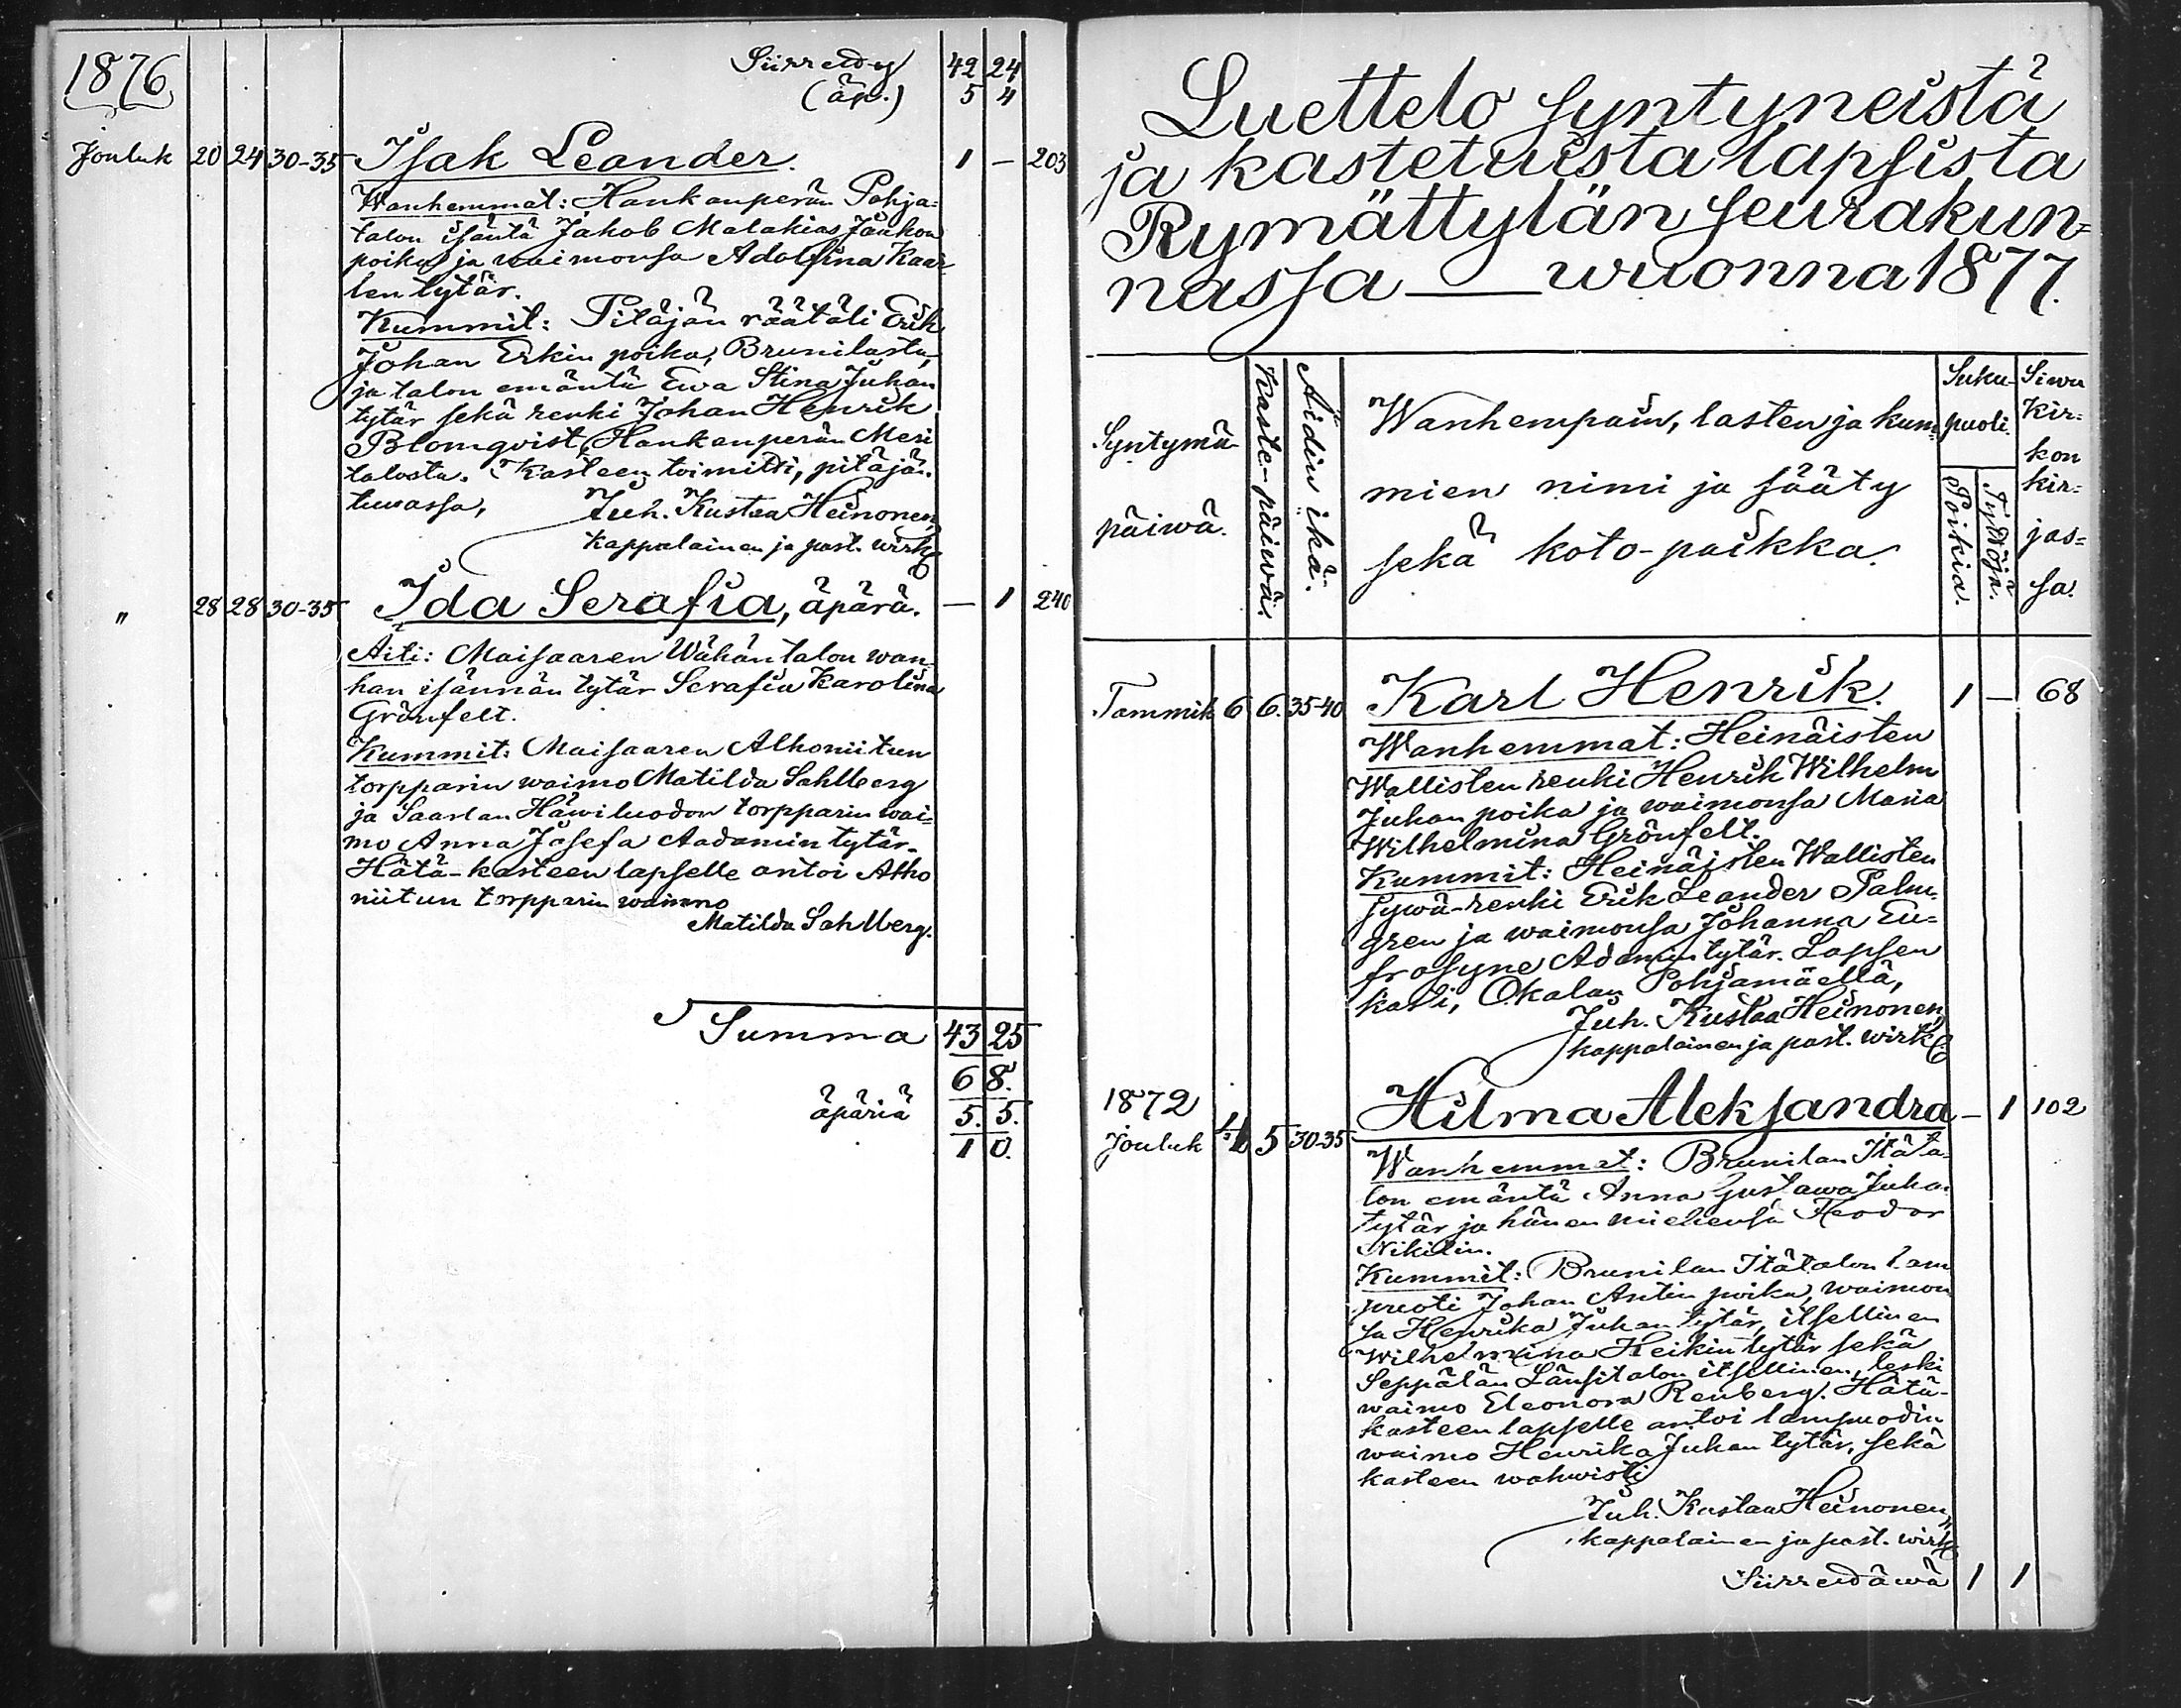 1876
Siirretty 42 24
(äp.) 5 4
Jouluk 20 24 30-35 Isak Leander. 1 — 203
Wanhemmat: Hankanperän Pohja-
talon isäntä Jakob Malakias Jaakon
poika ja waimonsa Adolfina Kaar-
len tytär.
Kummit: Pitäjän räätäli Erik
Johan Erkin poika, Brunilasta,
ja talon emäntä Ewa Stina Juhan
tytär sekä renki Johan Henrik
Blomqvist, Hankanperän Meri
talosta. Kasteen toimitti, pitäjän
tuwassa,
Juh. Kustaa Heinonen,
kappalainen ja past. wirk.
" 28 28 30-35 Ida Serafia, äpärä. — 1 240
Äiti: Maisaaren Wähäntalon wan-
han isännän tytär Serafia Karolina
Grönfelt.
Kummit: Maisaaren Alhoniitun
torpparin waimo Matilda Sahlberg
ja Saarlan Häwiluodon torpparin wai-
mo Anna Josefa Aadamin tytär.
Hätä-kasteen lapselle antoi Alho
niitun torpparin waimo
Matilda Sahlberg.
Summa 43 25
68.
äpäriä 5. 5.
10.
Luettelo syntyneistä
ja kastetuista lapsista
Rymättylän seurakun-
nassa — wuonna 1877.
Syntymä-
päiwä.
Kaste-päiwä.
Äidin ikä.
Wanhempain, lasten ja kum-
mien nimi ja sääty
sekä koto-paikka.
Suku-
puoli.
Poikia.
Tyttöjä.
Siwu
kir-
kon
kir-
jas-
sa.
Tammik 6 6. 35-40 Karl Henrik. 1 — 68
Wanhemmat: Heinäisten
Wallisten renki Henrik Wilhelm
Juhan poika ja waimonsa Maria
Wilhelmina Grönfelt.
Kummit: Heinäisten Wallisten
sywä-renki Erik Leander Palm-
gren ja waimonsa Johanna Eu-
frosyne Adamin tytär. Lapsen
kasti, Okalan Pohjamäellä,
Juh. Kustaa Heinonen,
kappalainen ja past. wirk.
1872
Jouluk 5 30-35 Hilma Aleksandra — 1 102
Wanhemmat: Brunilan Itäta-
lon emäntä Anna Gustawa Juha.
tytär ja hänen miehensä Feodor
Nikitin.
Kummit: Brunilan Itätalon lam
puoti Johan Antin poika, waimon
sa Henrika Juhan tytär, itsellinen
Wilhelmina Heikin tytär sekä
Seppälän Länsitalon itsellinen, leski
waimo Eleonora Renberg. Hätä-
kasteen lapselle antoi lampuodin
waimo Henrika Juhan tytär, sekä
kasteen wahwisti
Juh. Kustaa Heinonen,
kappalainen ja past. wirk.
Siirrettäwä 1 1